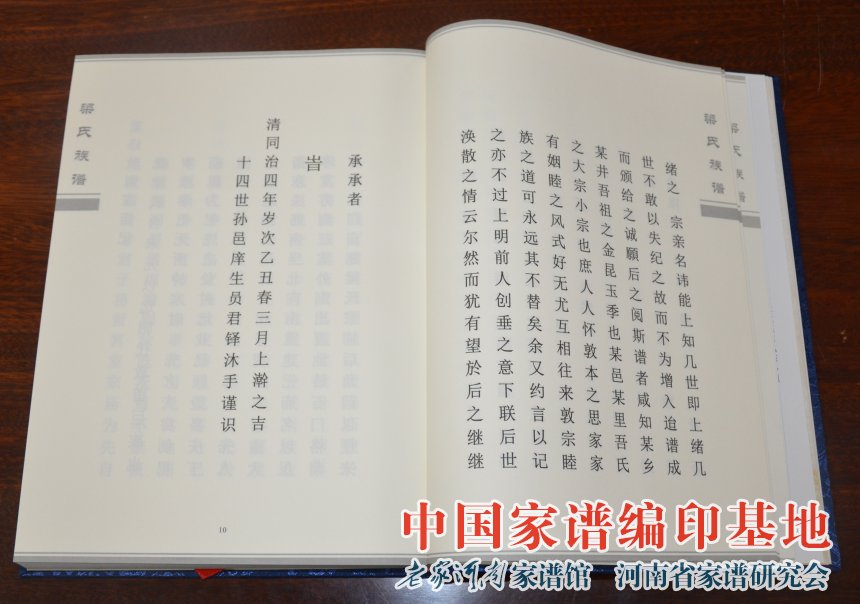 梁氏族谱
梁氏族谱
绪之宗亲名讳能上知几世即上绪几
世不敢以失纪之故而不为增入迨谱成
而颁给之诚愿后之阅斯谱者咸知某乡
某井吾祖之金昆玉季也某邑某里吾氏
之大宗小宗也庶人人怀敦本之思家家
有姻睦之风式好无尤互相往来敦宗睦
族之道可永远其不替矣余又约言以记
之亦不过上明前人创垂之意下联后世
涣散之情云尔然而犹有望於后之继继
承承者
旹
清同治四年岁次乙丑春三月上澣之吉
十四世孙邑庠生员君铎沐手谨识
梁氏族谱
10
中国家谱编印基地
老家河南家谱馆 河南省家谱研究会